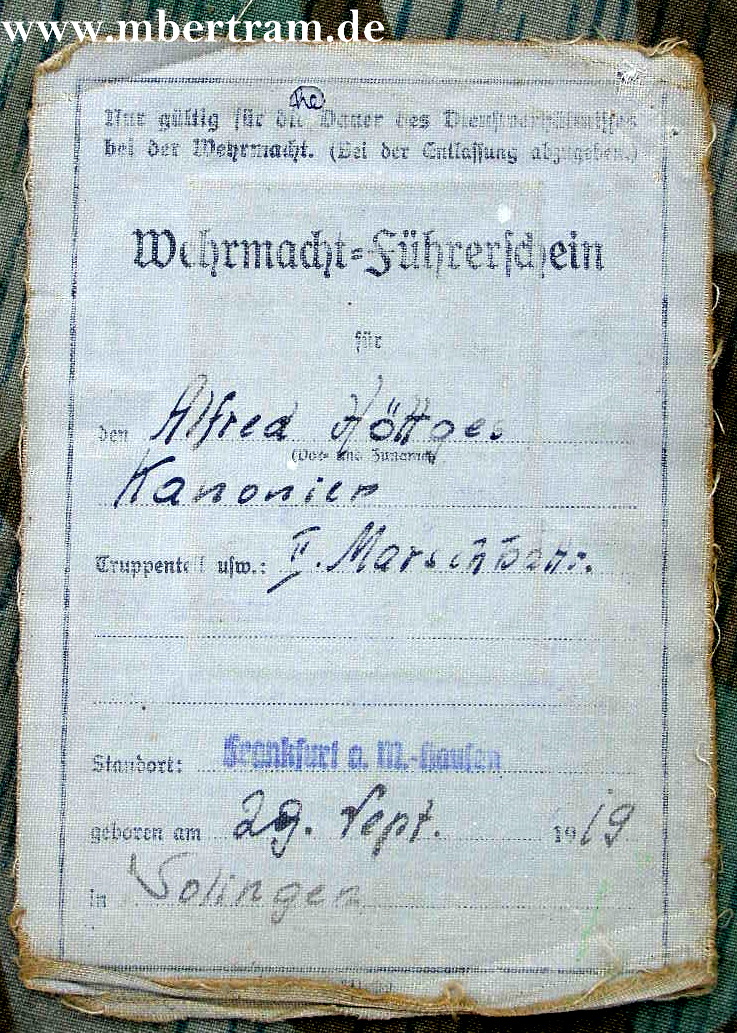 www.mbertram.de
Nur gültig für die Dauer des Dienstverhältnisses
bei der Wehrmacht. (Bei der Entlassung abzugeben.)
Wehrmacht=Führerschein
für
den Alfred Höttges
(Vor= und Zuname)
Kanonier
Truppenteil usw.: II. Marschbattr.
Standort: Frankfurt a. M.-Hausen
geboren am 29. Sept. 1919
in Solingen